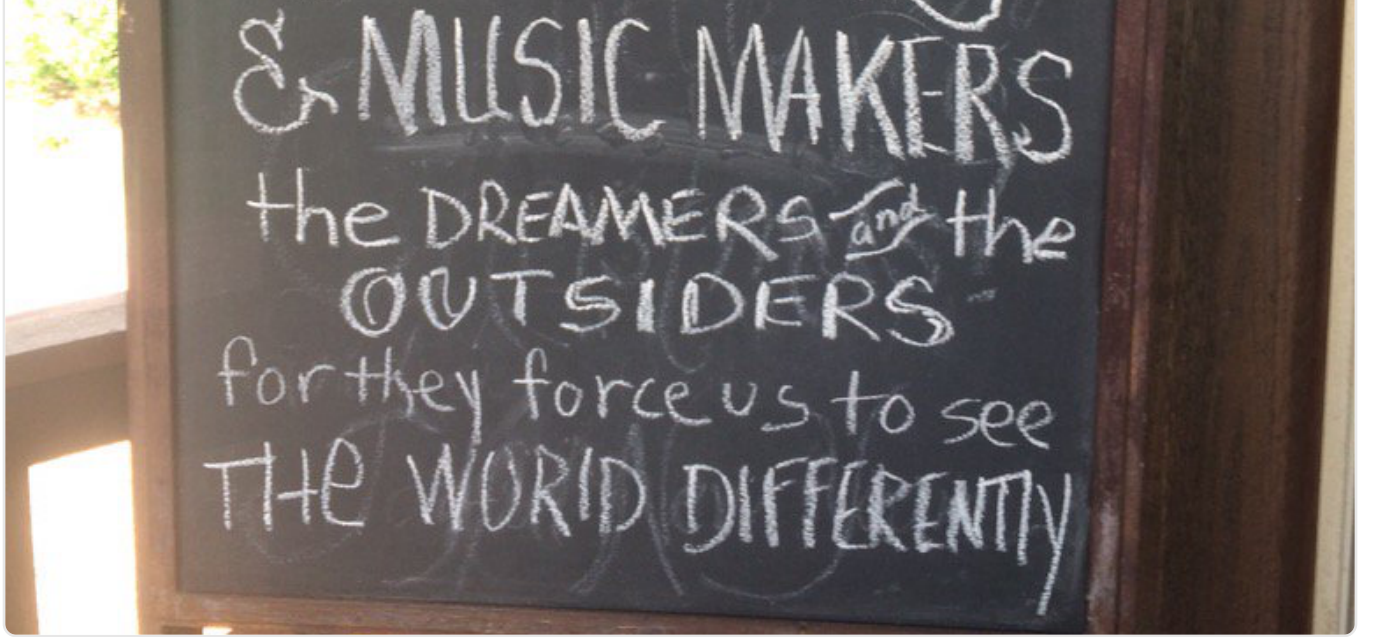 & MUSIC MAKERS
the DREAMERS and the
OUTSIDERS
for they force us to see
THE WORLD DIFFERENTLY